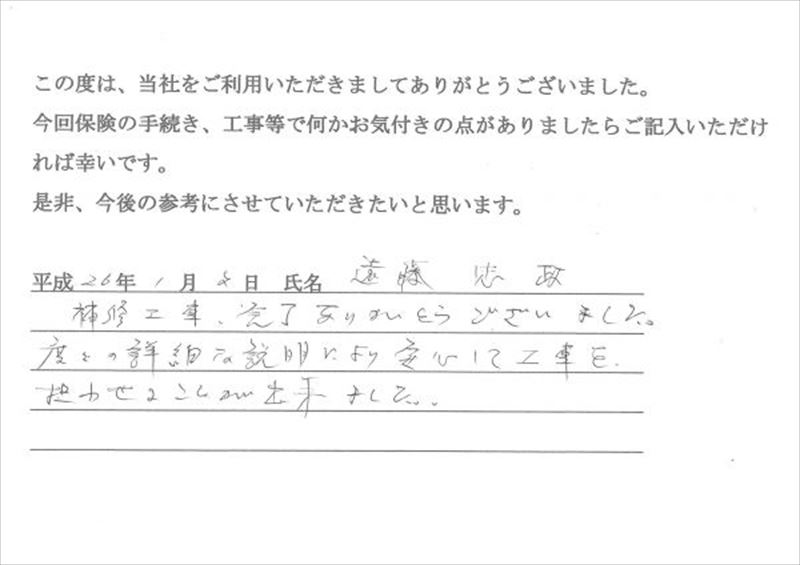 この度は、当社をご利用いただきましてありがとうございました。
今回保険の手続き、工事等で何かお気付きの点がありましたらご記入いただけ
れば幸いです。
是非、今後の参考にさせていただきたいと思います。
平成 26年 1 月 8 日 氏名 遠藤 忠政
補修工事、完了ありがとうございました。
度々の詳細な説明により安心して工事を
任わせることが出来ました。